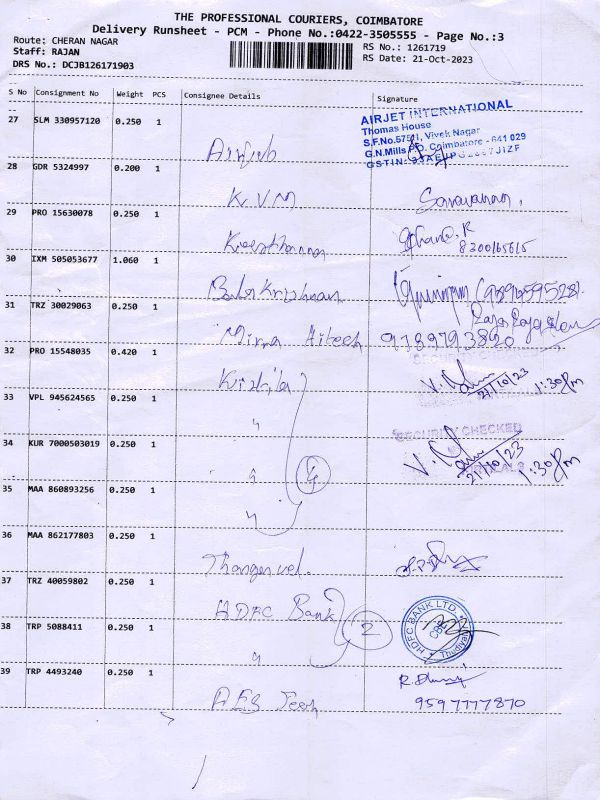 THE PROFESSIONAL COURIERS, COIMBATORE
Delivery Runsheet - PCM - Phone No.:0422-3505555 - Page No.:3
Route: CHERAN NAGAR
RS No.: 1261719
Staff: RAJAN
RS Date: 21-Oct-2023
DRS No.: DCJB126171903
S No Consignment No Weight PCS Consignee Details Signature
27 SLM 330957120 0.250 1
AIRJET INTERNATIONAL
Thomas House
S.F.No.575/1, Vivek Nagar
G.N.Mills P.O. Coimbatore - 641 029
GSTIN:
28 GDR 5324997 0.200 1 K V M
29 PRO 15630078 0.250 1
8300165615
30 IXM 505053677 1.060 1 Balakrishnan
31 TRZ 30029063 0.250 1 Mirra Hitech 9789793820
32 PRO 15548035 0.420 1
V.
21/10/23 1:30 pm
33 VPL 945624565 0.250 1 "
SECURITY CHECKED
34 KUR 7000503019 0.250 1 "
V.
21/10/23 1:30 pm
4
35 MAA 860893256 0.250 1 "
36 MAA 862177803 0.250 1 Thangavel.
37 TRZ 40059802 0.250 1 HDFC Bank
HDFC BANK LTD.
CBE
38 TRP 5088411 0.250 1 "
2
39 TRP 4493240 0.250 1 AES Tech
9597777870